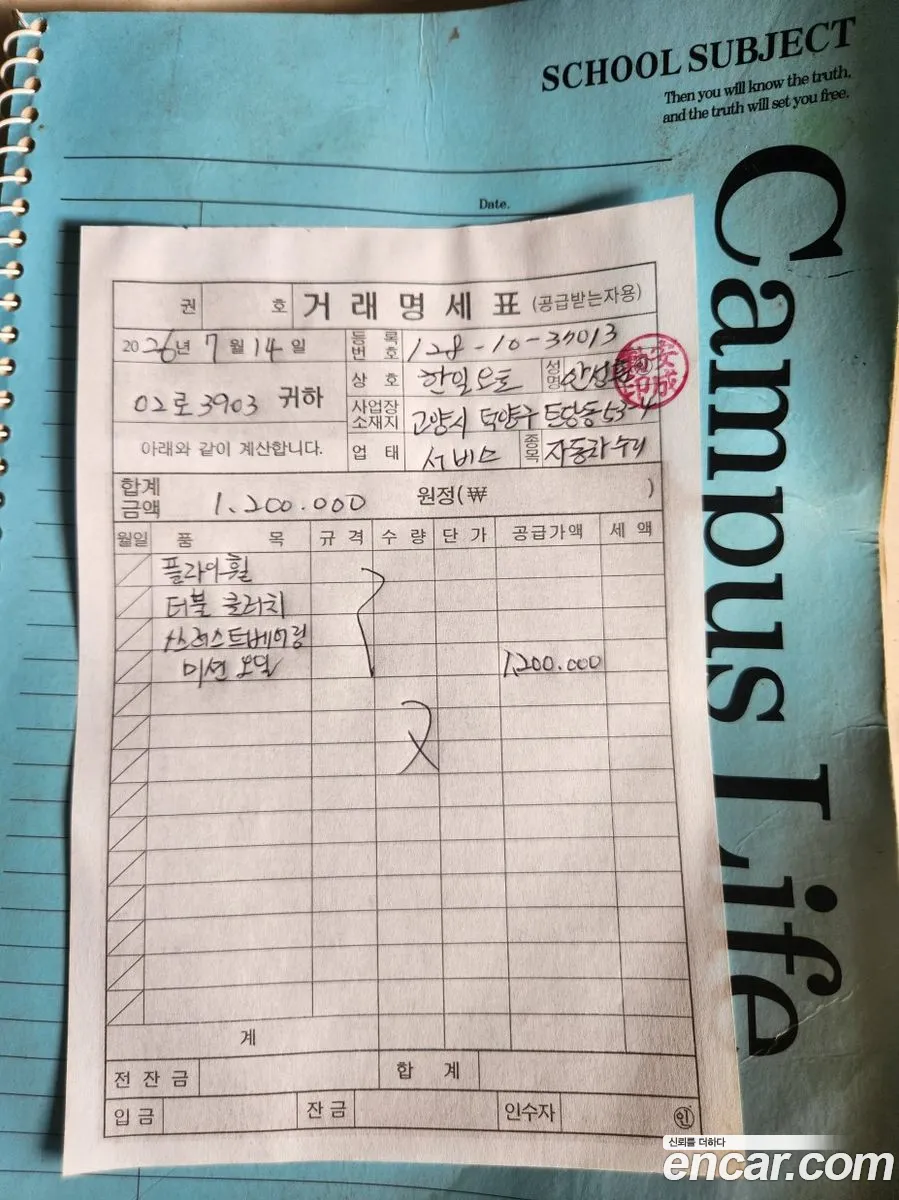 SCHOOL SUBJECT
Then you will know the truth,
and the truth will set you free.
Campus Life
Date.
권 호 거래명세표 (공급받는자용)
2026년 7월 14일
등록번호 128-10-37013
02로3903 귀하
상호 한일오토 성명 안성
아래와 같이 계산합니다.
사업장소재지 고양시 덕양구 토당동 53-4
업태 서비스 종목 자동차수리
합계금액 1,200.000 원정(₩ )
월일 품목 규격 수량 단가 공급가액 세액
플라이휠
더블 클러치
쓰러스트베어링
미션 오일 1,200.000
계
전잔금 합계
입금 잔금 인수자 인
신뢰를 더하다
encar.com